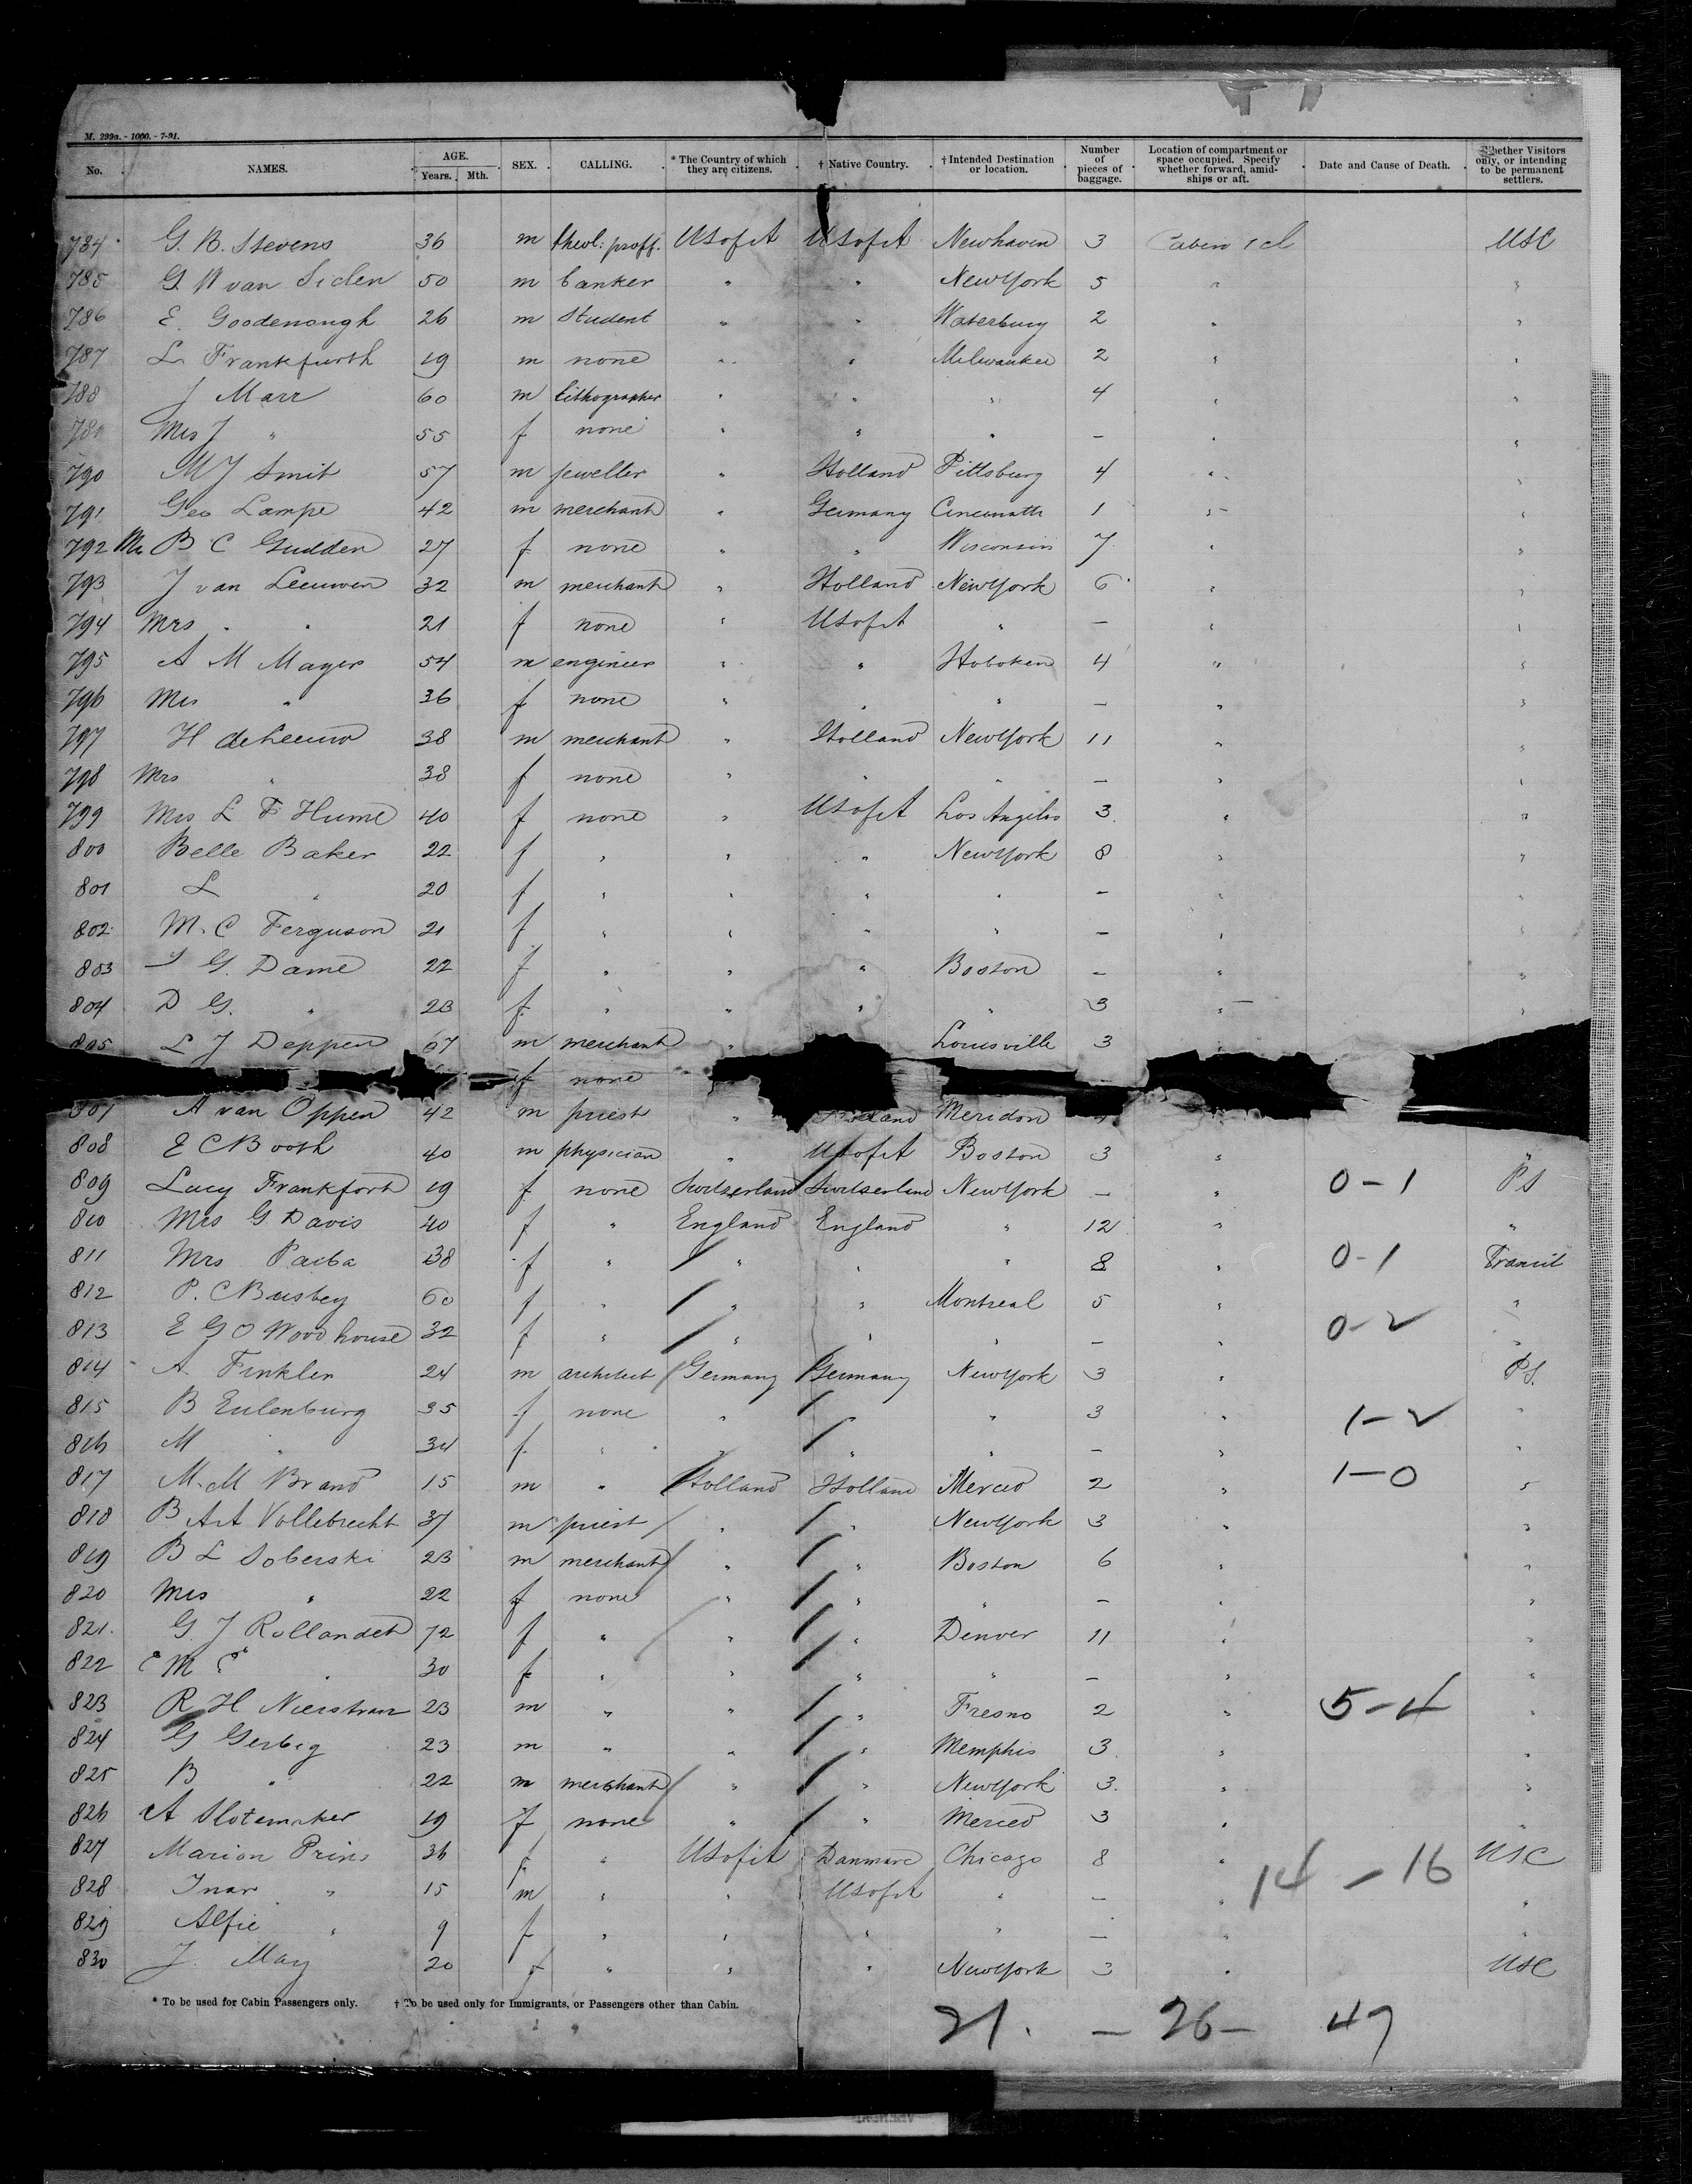 M. 299a. - 1000. - 7-91.
No. NAMES. AGE. Years. Mth. SEX. CALLING. * The Country of which they are citizens. † Native Country. † Intended Destination or location. Number of pieces of baggage. Location of compartment or space occupied. Specify whether forward, amidships or aft. Date and Cause of Death. Whether Visitors only, or intending to be permanent settlers.
784 G. B. Stevens 36 m theol: proff. USofA USofA Newhaven 3 Cabin 1 cl USC
785 G W van Siclen 50 m banker " " NewYork 5 " "
786 E. Goodenough 26 m student " " Waterbury 2 " "
787 L Frankfurth 19 m none " " Milwaukee 2 " "
788 J Marr 60 m lithographer " " " 4 " "
Mrs J " 55 f none " " " — " "
790 M J Smit 57 m jeweller " Holland Pittsburg 4 " "
791 Geo Lampe 42 m merchant " Germany Cincinatti 1 " "
792 B C Gudden 27 f none " " Wisconsin 7 " "
793 J van Leeuwen 32 m merchant " Holland NewYork 6 " "
794 Mrs " " 21 f none " USofA " — " "
795 A M Mayer 54 m engineer " " Hoboken 4 " "
796 Mrs " 36 f none " " " — " "
797 H de Leeuw 38 m merchant " Holland NewYork 11 " "
798 Mrs " 38 f none " " " — " "
799 Mrs L F Hume 40 f none " USofA Los Angelos 3 " "
800 Belle Baker 22 f " " " NewYork 8 " "
801 L " 20 f " " " " — " "
802 M. C Ferguson 21 f " " " " — " "
803 G. Dame 22 f " " " Boston — " "
804 D G. " 23 f " " " " 3 " "
805 L J Deppen 67 m merchant " Louisville 3
f none
A van Oppen 42 m priest " Holland Meridon
808 E C Booth 40 m physician " USofA Boston 3 " "
809 Lucy Frankfort 19 f none Switserland Switserland NewYork — " 0-1 PS
810 Mrs G Davis 40 f " England England " 12 " "
811 Mrs Paiba 38 f " " " " 8 " 0-1 Transit
812 P. C Busbey 60 f " " " Montreal 5 " "
813 E G O Woodhouse 32 f " " " " — " 0-2 "
814 A. Finkler 24 m architect Germany Germany NewYork 3 " PS.
815 B Eulenburg 35 f none " " " 3 " 1-2 "
816 M " 34 f " " " " — " "
817 M. M Brand 15 m " Holland Holland Merced 2 " 1-0 "
818 B A A Vollebrecht 37 m priest " " NewYork 3 " "
819 B L Soberski 23 m merchant " " Boston 6 " "
820 Mrs " 22 f none " " " — " "
821. G J Rollandet 72 f " " " Denver 11 " "
822 30 f " " " " — " "
823 R H Nierstrasz 23 m " " " Fresno 2 " 5-4 "
824 G Gerbig 23 m " " " Memphis 3 " "
825 B " 22 m merchant " " NewYork 3. " "
826 A Slotemaker 19 f none " " Merced 3 " "
827 Marion Prins 36 f " USofA Danmarc Chicago 8 " USC
828 Inar " 15 m " " USofA " — " 14 - 16 "
829 Alfie " 9 f " " " " — " "
830 J. May 20 f " " " NewYork 3 " USC
* To be used for Cabin Passengers only. † To be used only for Immigrants, or Passengers other than Cabin.
21. — 26 — 47